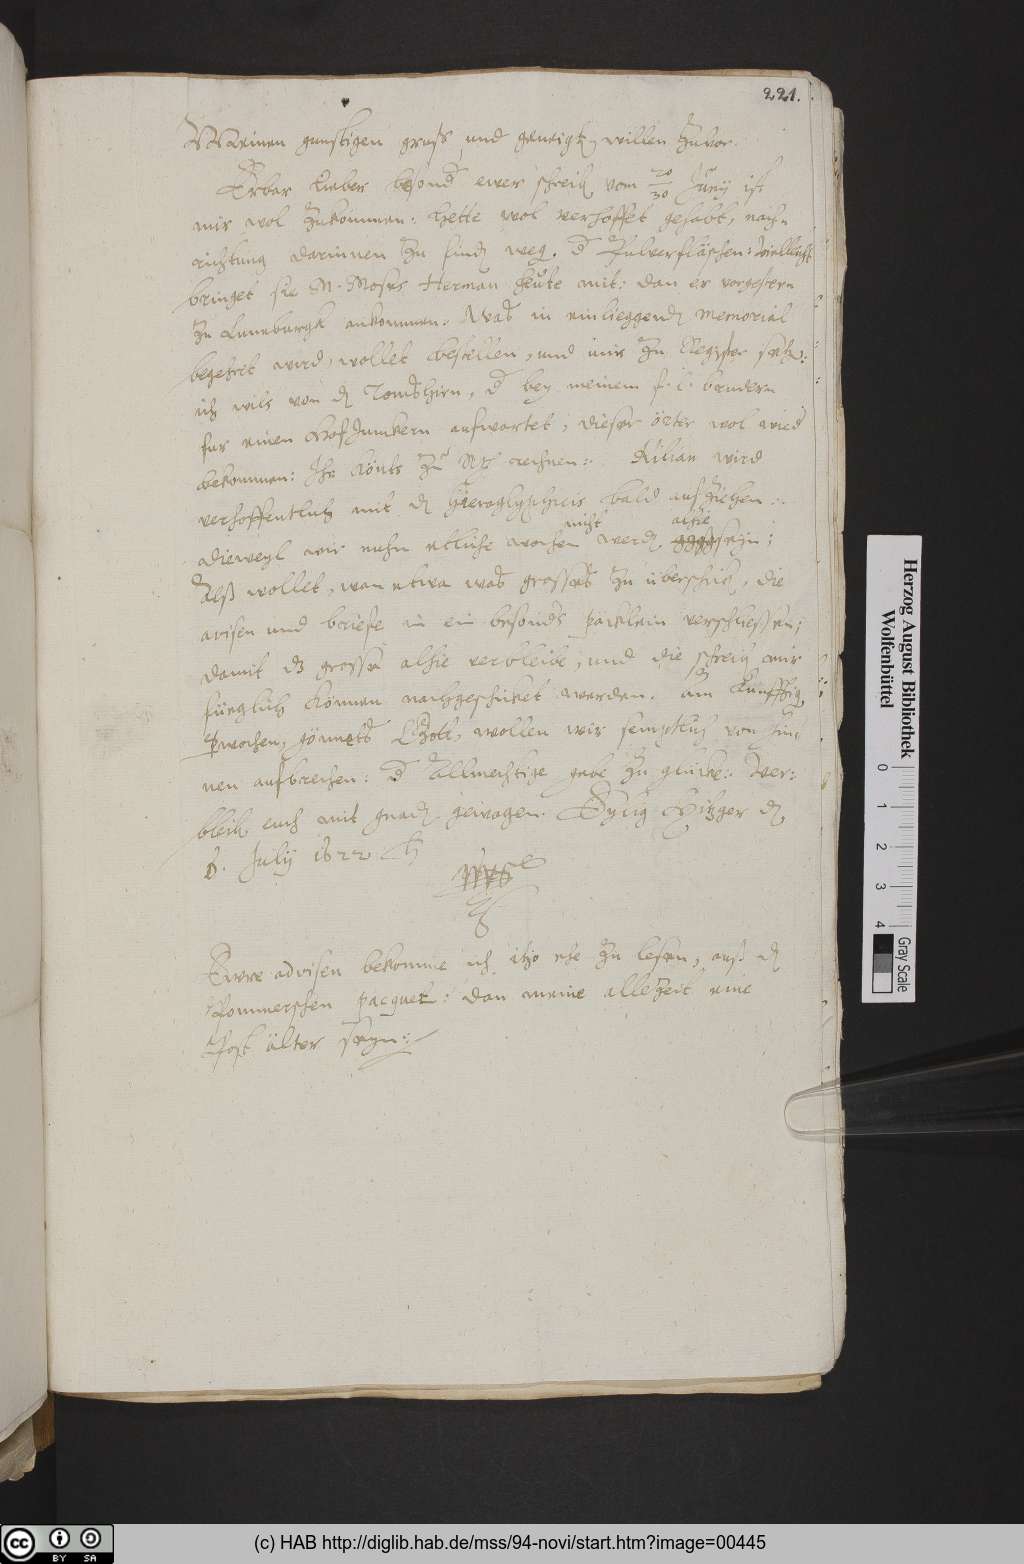 221.
Meinen gunstigen grus und geneigt willen zuvor.
Erbar lieber besond ewer schreib vom 20/30 Junij ist
mir wol zukommen: hette wol verhoffet gehabt, nach-
richtung darinnen zu find weg. d Pulverfläschen: Vielleicht
bringet sie M. Moses Herman heute mit: dan er vorgestern
zu Luneburgk ankommen. Was in einliggend memorial
begehrt wird, wollet bestellen, und mir zu Register setz:
ich wils von d, d bey meinem f. l. brudern
fur einen Hof Junkern aufwartet, dieser örter wol wied
bekommen: Ihr könts zu rechnen: Kilian wird
verhoffentlich mit d Hieroglyphicis bald aufziehen:
dieweyl wir nuhn etliche wochen nicht werd alhie seyn:
Alß wollet, wan etwa was grosses zu überschick, die
avisen und briefe in ein besonders päcklein verschliessen;
damit dz grosse alhie verbleibe, und die schreib mir
füeglich können nachgeschicket werden. Am kunfftig
wochen, gönnets Gott, wollen wir semptlich von hin-
nen aufbrechen: d Allmechtige gebe zu glücke: Ver-
bleib euch mit gnad gewogen. Hitzger d
6. Julij 1622
Ewre advisen bekomme ich itzo ehe zu lesen, auß d
Pommerschen pacquet: dan meine allezeit eine
Post älter seyn:
Herzog August Bibliothek
Wolfenbüttel
0 1 2 3 4
Gray Scale
cc BY SA
(c) HAB http://diglib.hab.de/mss/94-novi/start.htm?image=00445